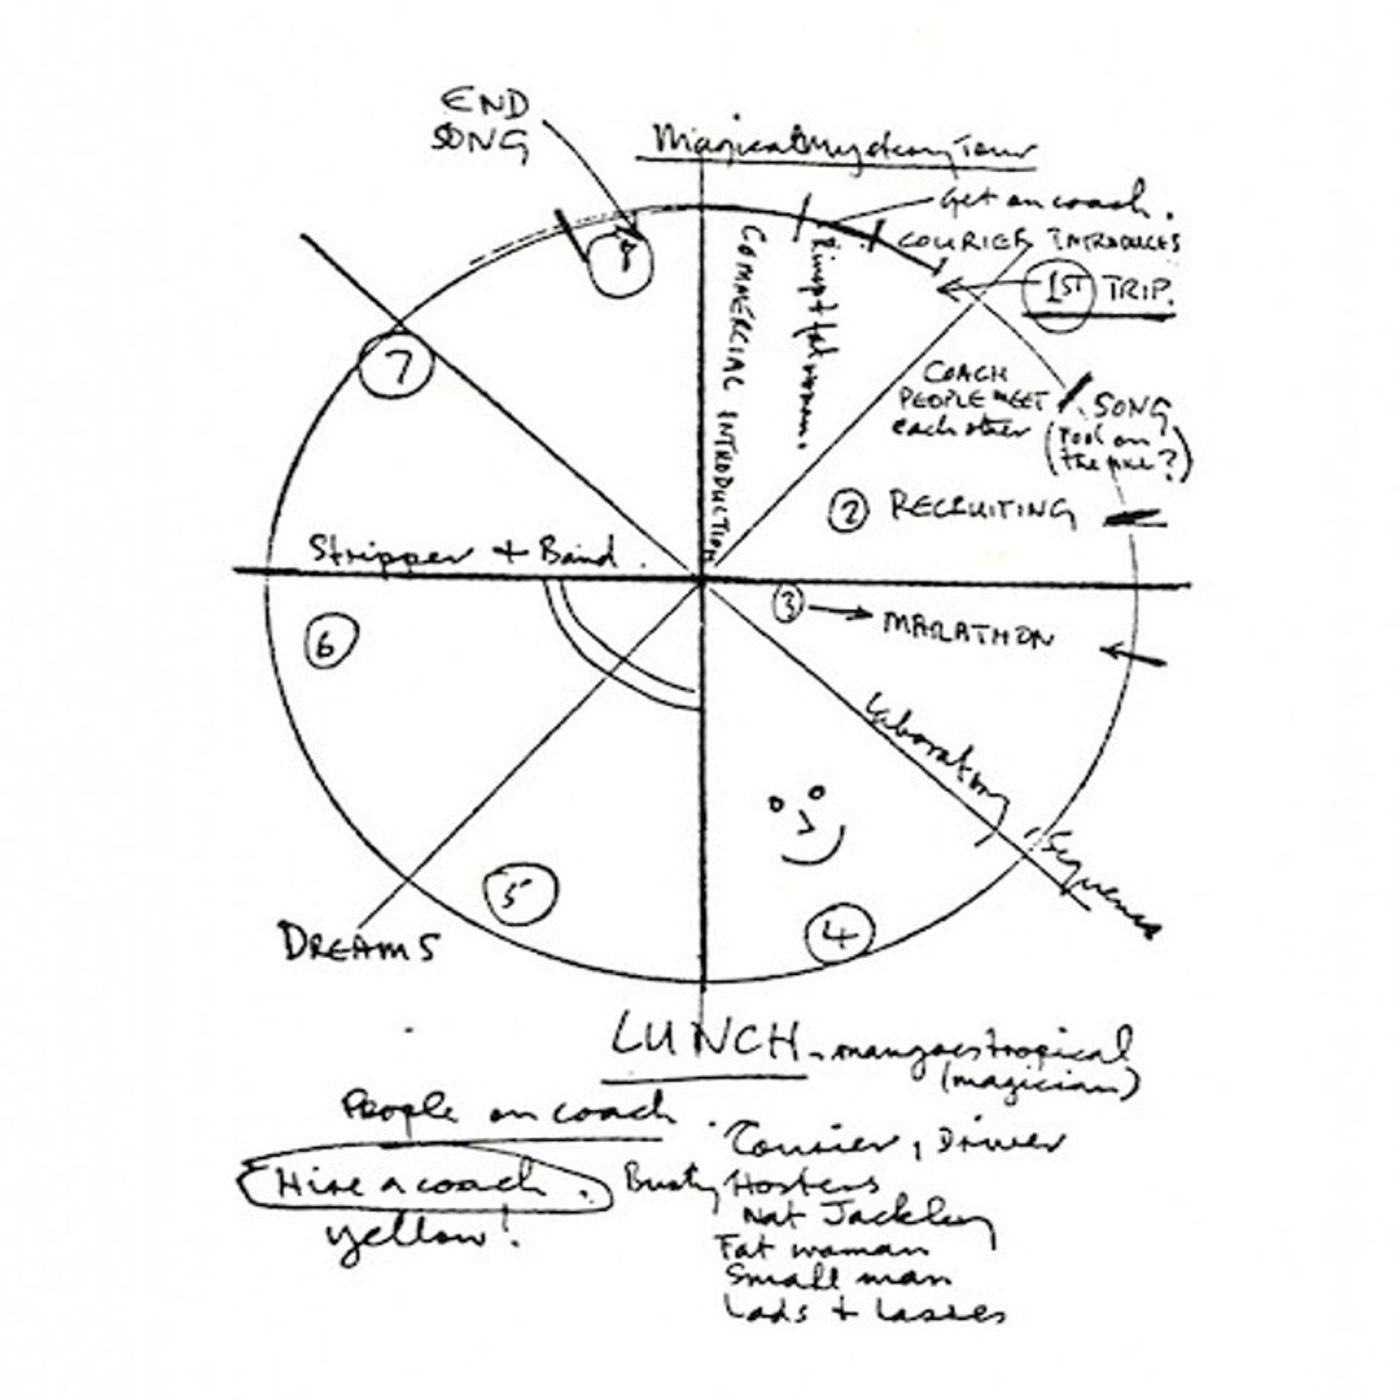 END
SONG
Magical Mystery Tour
Get on coach.
COURIER INTRODUCES
1ST TRIP.
COMMERCIAL INTRODUCTION
fat woman.
COACH
PEOPLE MEET
each other
SONG
(Fool on
the hill?)
2 RECRUITING
3 MARATHON
Laboratory Sequence
4
5
DREAMS
6
Stripper + Band.
7
8
LUNCH - mangoes tropical
(magician)
People on coach.
Courier, Driver
Hire a coach.
yellow!
Busty Hostess
Nat Jackley
Fat woman
Small man
Lads + Lasses